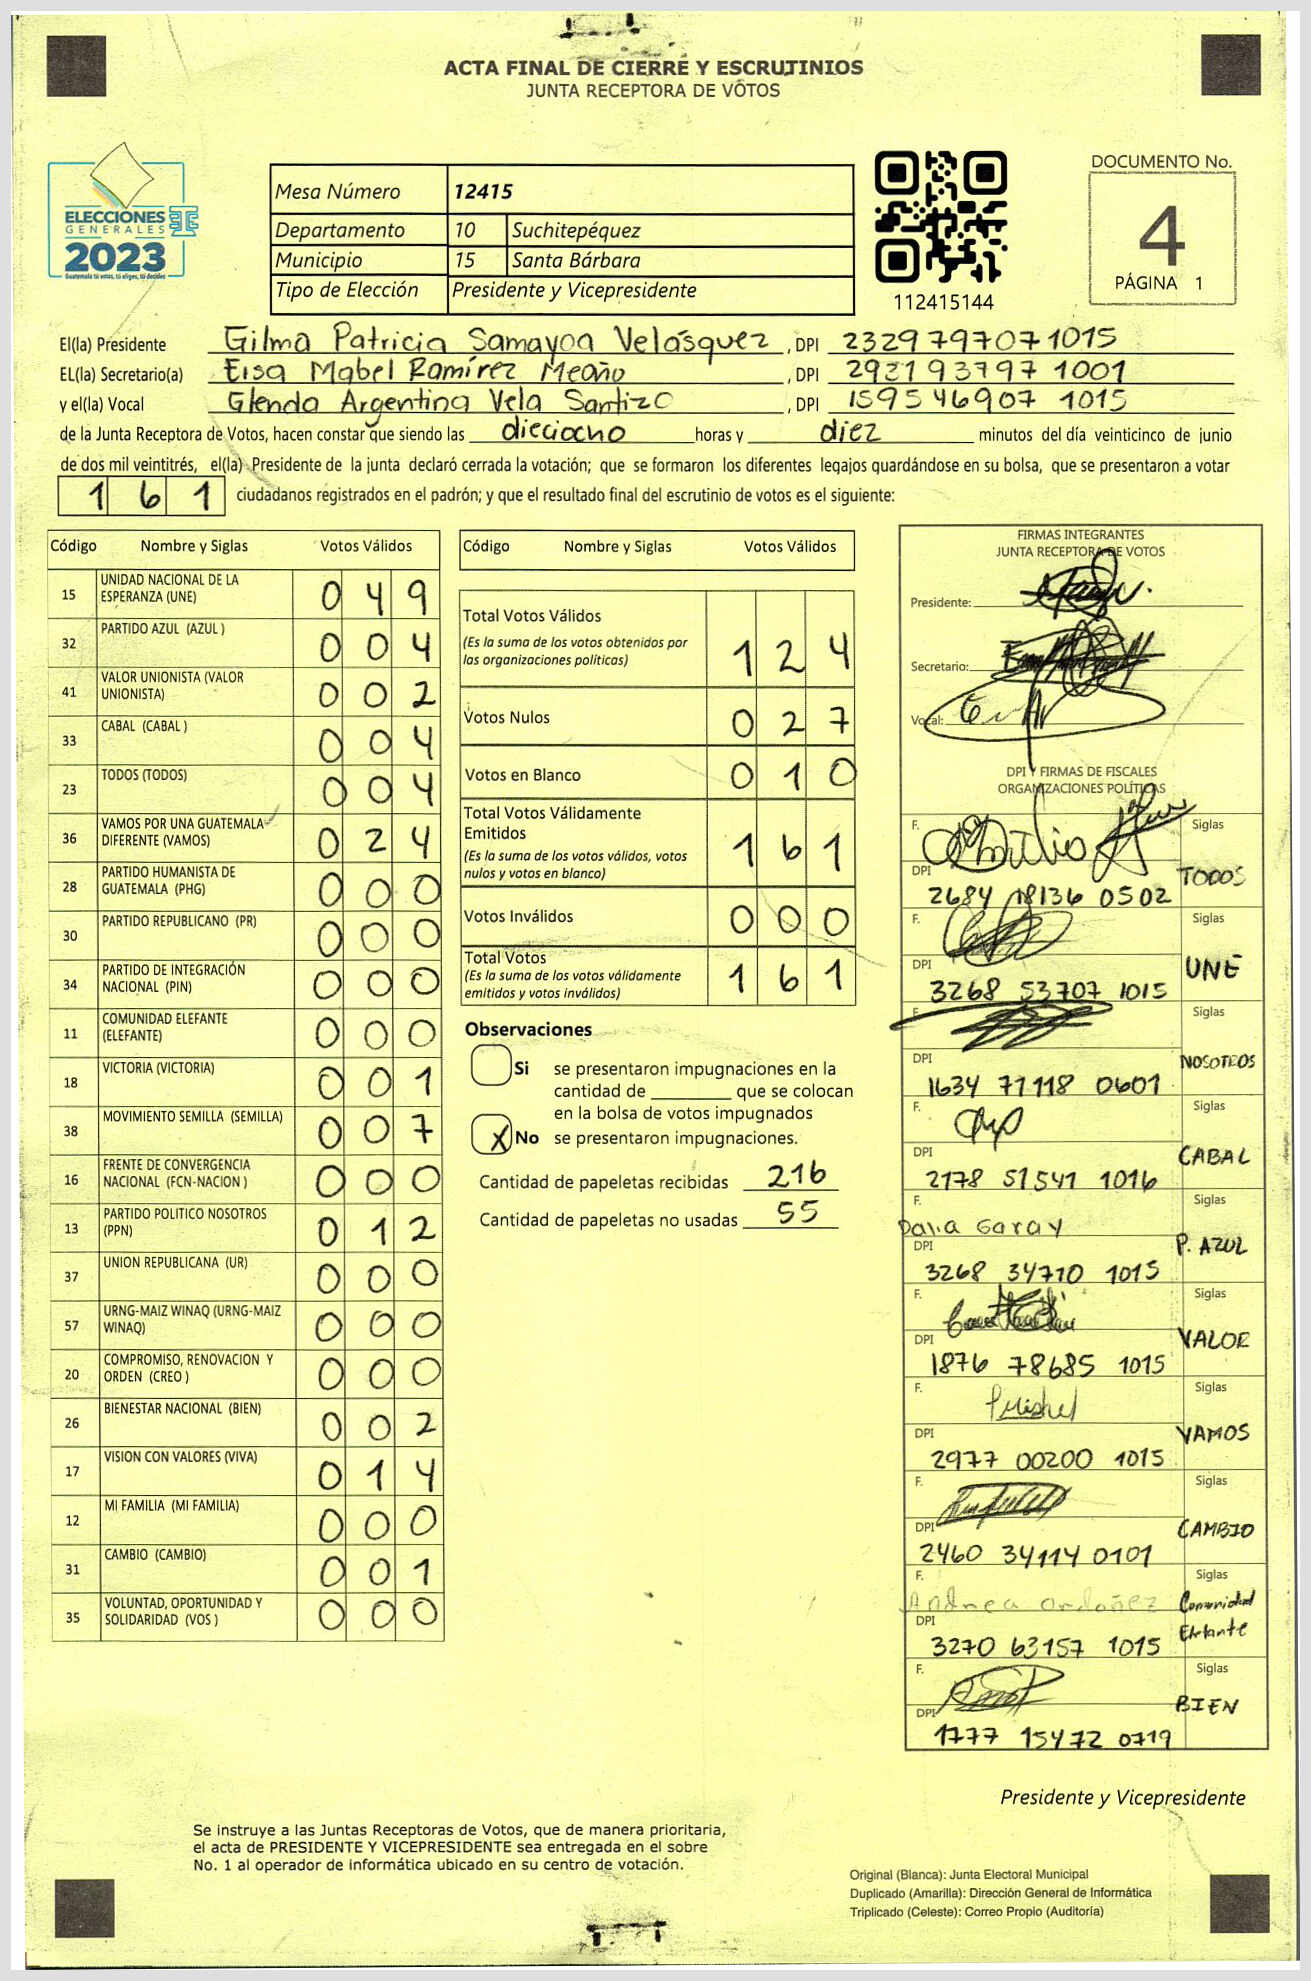 ACTA FINAL DE CIERRE Y ESCRUTINIOS
JUNTA RECEPTORA DE VOTOS
ELECCIONES
GENERALES
2023
Guatemala tú votas, tú eliges, tú decides
Mesa Número 12415
Departamento 10 Suchitepéquez
Municipio 15 Santa Bárbara
Tipo de Elección Presidente y Vicepresidente
112415144
DOCUMENTO No.
4
PÁGINA 1
El(la) Presidente Gilma Patricia Samayoa Velásquez , DPI 2329797071015
EL(la) Secretario(a) Elsa Mabel Ramírez Meaño , DPI 292193797 1001
y el(la) Vocal Glenda Argentina Vela Santizo , DPI 159546907 1015
de la Junta Receptora de Votos, hacen constar que siendo las dieciocho horas y diez minutos del día veinticinco de junio
de dos mil veintitrés, el(la) Presidente de la junta declaró cerrada la votación; que se formaron los diferentes legajos guardándose en su bolsa, que se presentaron a votar
1 6 1 ciudadanos registrados en el padrón; y que el resultado final del escrutinio de votos es el siguiente:
Código Nombre y Siglas Votos Válidos
15 UNIDAD NACIONAL DE LA ESPERANZA (UNE) 0 4 9
32 PARTIDO AZUL (AZUL ) 0 0 4
41 VALOR UNIONISTA (VALOR UNIONISTA) 0 0 2
33 CABAL (CABAL ) 0 0 4
23 TODOS (TODOS) 0 0 4
36 VAMOS POR UNA GUATEMALA DIFERENTE (VAMOS) 0 2 4
28 PARTIDO HUMANISTA DE GUATEMALA (PHG) 0 0 0
30 PARTIDO REPUBLICANO (PR) 0 0 0
34 PARTIDO DE INTEGRACIÓN NACIONAL (PIN) 0 0 0
11 COMUNIDAD ELEFANTE (ELEFANTE) 0 0 0
18 VICTORIA (VICTORIA) 0 0 1
38 MOVIMIENTO SEMILLA (SEMILLA) 0 0 7
16 FRENTE DE CONVERGENCIA NACIONAL (FCN-NACION ) 0 0 0
13 PARTIDO POLITICO NOSOTROS (PPN) 0 1 2
37 UNION REPUBLICANA (UR) 0 0 0
57 URNG-MAIZ WINAQ (URNG-MAIZ WINAQ) 0 0 0
20 COMPROMISO, RENOVACION Y ORDEN (CREO ) 0 0 0
26 BIENESTAR NACIONAL (BIEN) 0 0 2
17 VISION CON VALORES (VIVA) 0 1 4
12 MI FAMILIA (MI FAMILIA) 0 0 0
31 CAMBIO (CAMBIO) 0 0 1
35 VOLUNTAD, OPORTUNIDAD Y SOLIDARIDAD (VOS ) 0 0 0
Código Nombre y Siglas Votos Válidos
Total Votos Válidos
(Es la suma de los votos obtenidos por
las organizaciones políticas)
1 2 4
Votos Nulos 0 2 7
Votos en Blanco 0 1 0
Total Votos Válidamente
Emitidos
(Es la suma de los votos válidos, votos
nulos y votos en blanco)
1 6 1
Votos Inválidos 0 0 0
Total Votos
(Es la suma de los votos válidamente
emitidos y votos inválidos)
1 6 1
Observaciones
Si se presentaron impugnaciones en la
cantidad de que se colocan
en la bolsa de votos impugnados
X No se presentaron impugnaciones.
Cantidad de papeletas recibidas 216
Cantidad de papeletas no usadas 55
FIRMAS INTEGRANTES
JUNTA RECEPTORA DE VOTOS
Presidente:
Secretario:
Vocal:
DPI Y FIRMAS DE FISCALES
ORGANIZACIONES POLÍTICAS
F. Siglas
DPI 2684 18136 0502 TODOS
F. Siglas
DPI 3268 53707 1015 UNE
F. Siglas
DPI 1634 77118 0601 NOSOTROS
F. Siglas
DPI 2178 51541 1016 CABAL
F. Dalia Garay Siglas
DPI 3268 34710 1015 P. AZUL
F. Siglas
DPI 1876 78685 1015 VALOR
F. Siglas
DPI 2977 00200 1015 VAMOS
F. Siglas
DPI 2460 34114 0101 CAMBIO
F. Andrea Ordoñez Siglas
DPI 3270 63157 1015 Comunidad Elefante
F. Siglas
DPI 1777 15472 0719 BIEN
Presidente y Vicepresidente
Se instruye a las Juntas Receptoras de Votos, que de manera prioritaria,
el acta de PRESIDENTE Y VICEPRESIDENTE sea entregada en el sobre
No. 1 al operador de informática ubicado en su centro de votación.
Original (Blanca): Junta Electoral Municipal
Duplicado (Amarilla): Dirección General de Informática
Triplicado (Celeste): Correo Propio (Auditoría)